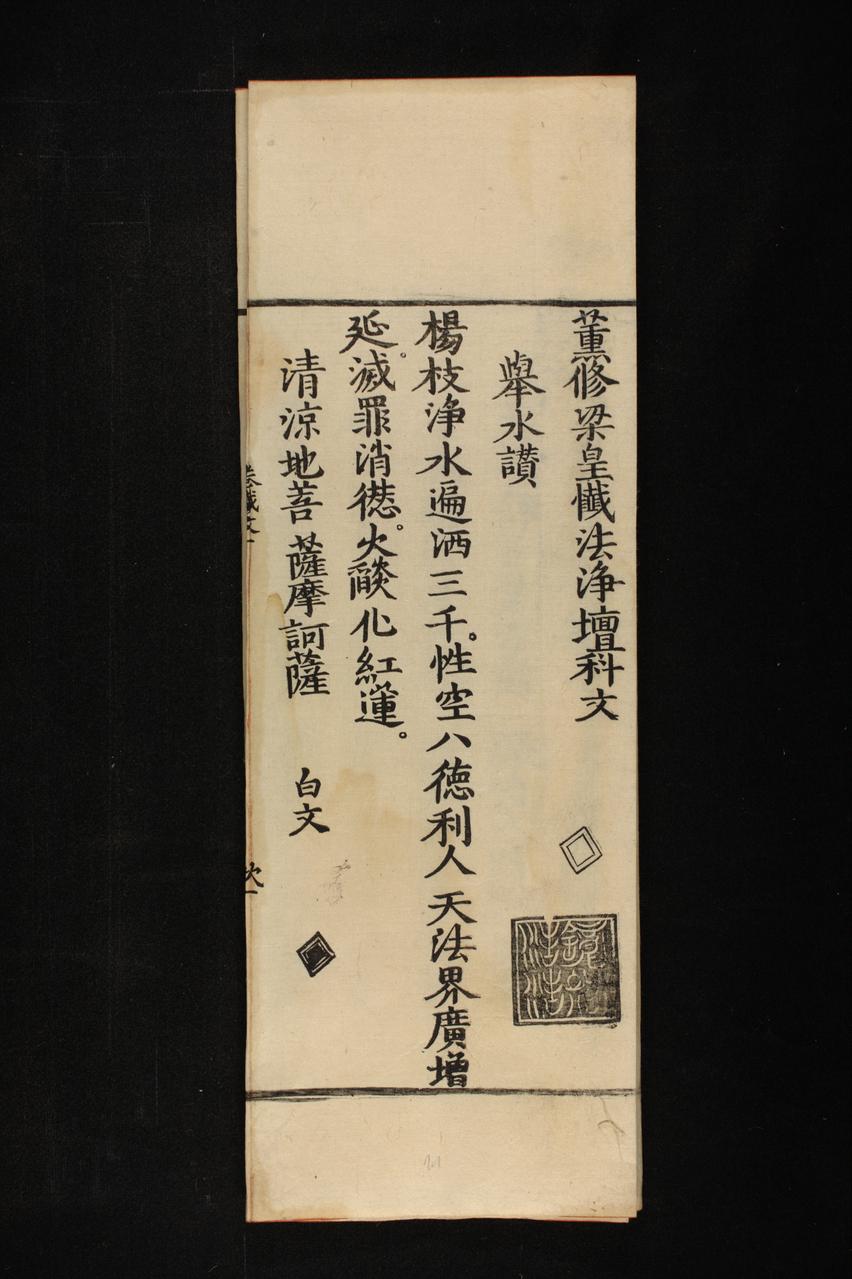 薫修梁皇懺法浄壇科文
舉水讃
楊枝浄水遍洒三千。性空八徳利人天法界廣增
延。滅罪消愆。火燄化紅蓮。
清涼地菩薩摩訶薩
白文